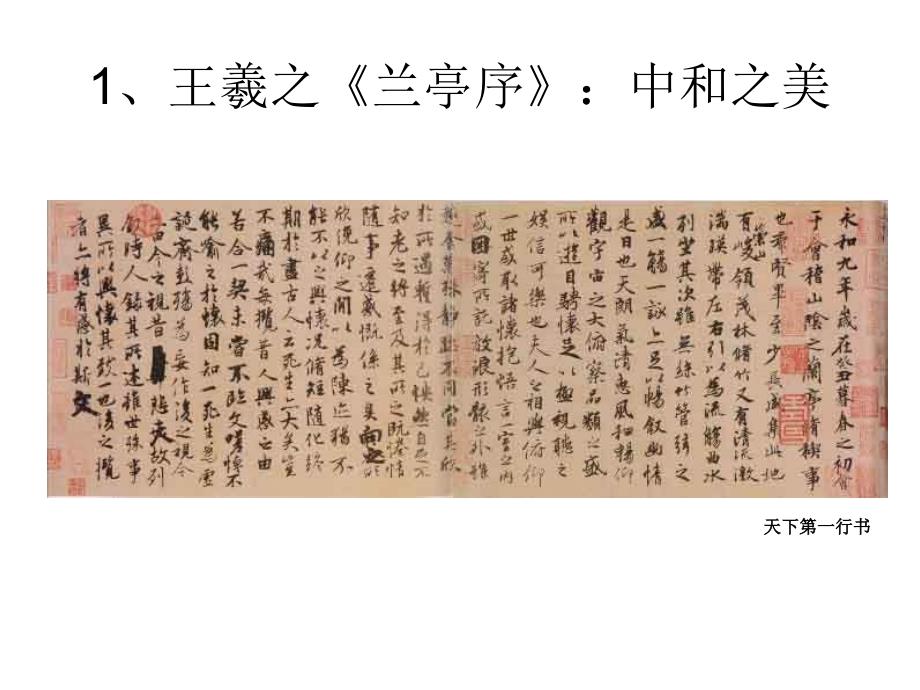 1、王羲之《兰亭序》：中和之美
永和九年歲在癸丑暮春之初會
于會稽山陰之蘭亭脩稧事
也羣賢畢至少長咸集此地
有崇山峻領茂林脩竹又有清流激
湍暎帶左右引以為流觴曲水
列坐其次雖無絲竹管弦之
盛一觴一詠亦足以暢敘幽情
是日也天朗氣清惠風和暢仰
觀宇宙之大俯察品類之盛
所以遊目騁懷足以極視聽之
娛信可樂也夫人之相與俯仰
一世或取諸懷抱悟言一室之內
或因寄所託放浪形骸之外雖
趣舍萬殊靜躁不同當其欣
於所遇暫得於己快然自足不
知老之將至及其所之既惓情
隨事遷感慨係之矣向之所
欣俛仰之閒以為陳迹猶不
能不以之興懷況脩短隨化終
期於盡古人云死生亦大矣豈
不痛哉每攬昔人興感之由
若合一契未嘗不臨文嗟悼不
能喻之於懷固知一死生為虛
誕齊彭殤為妄作後之視今
亦由今之視昔悲夫故列
敘時人錄其所述雖世殊事
異所以興懷其致一也後之攬
者亦將有感於斯文
天下第一行书